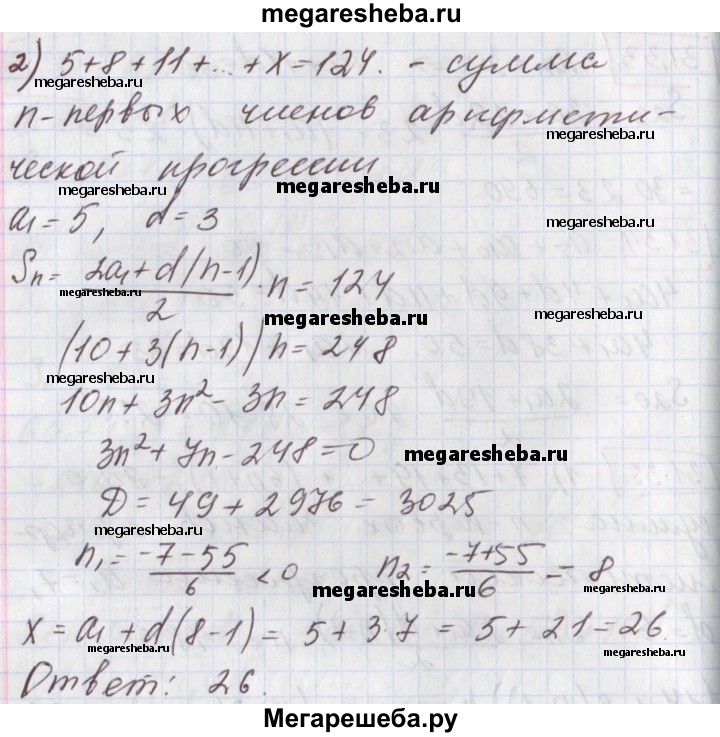 megaresheba.ru
2) 5+8+11+...+x=124. - сумма
megaresheba.ru
n-первых членов арифмети-
megaresheba.ru
ческой прогрессии
megaresheba.ru megaresheba.ru
a₁=5, d=3
Sₙ= (2a₁+d(n-1))/2 · n=124
megaresheba.ru
megaresheba.ru
(10+3(n-1))n=248
megaresheba.ru
10n+3n²-3n=248
3n²+7n-248=0
megaresheba.ru
D=49+2976=3025
megaresheba.ru
n₁= (-7-55)/6 <0 n₂= (-7+55)/6 = 8
megaresheba.ru
megaresheba.ru
x=a₁+d(8-1)= 5+3·7 =5+21=26.
megaresheba.ru
megaresheba.ru
Ответ: 26.
Мегарешеба.ру